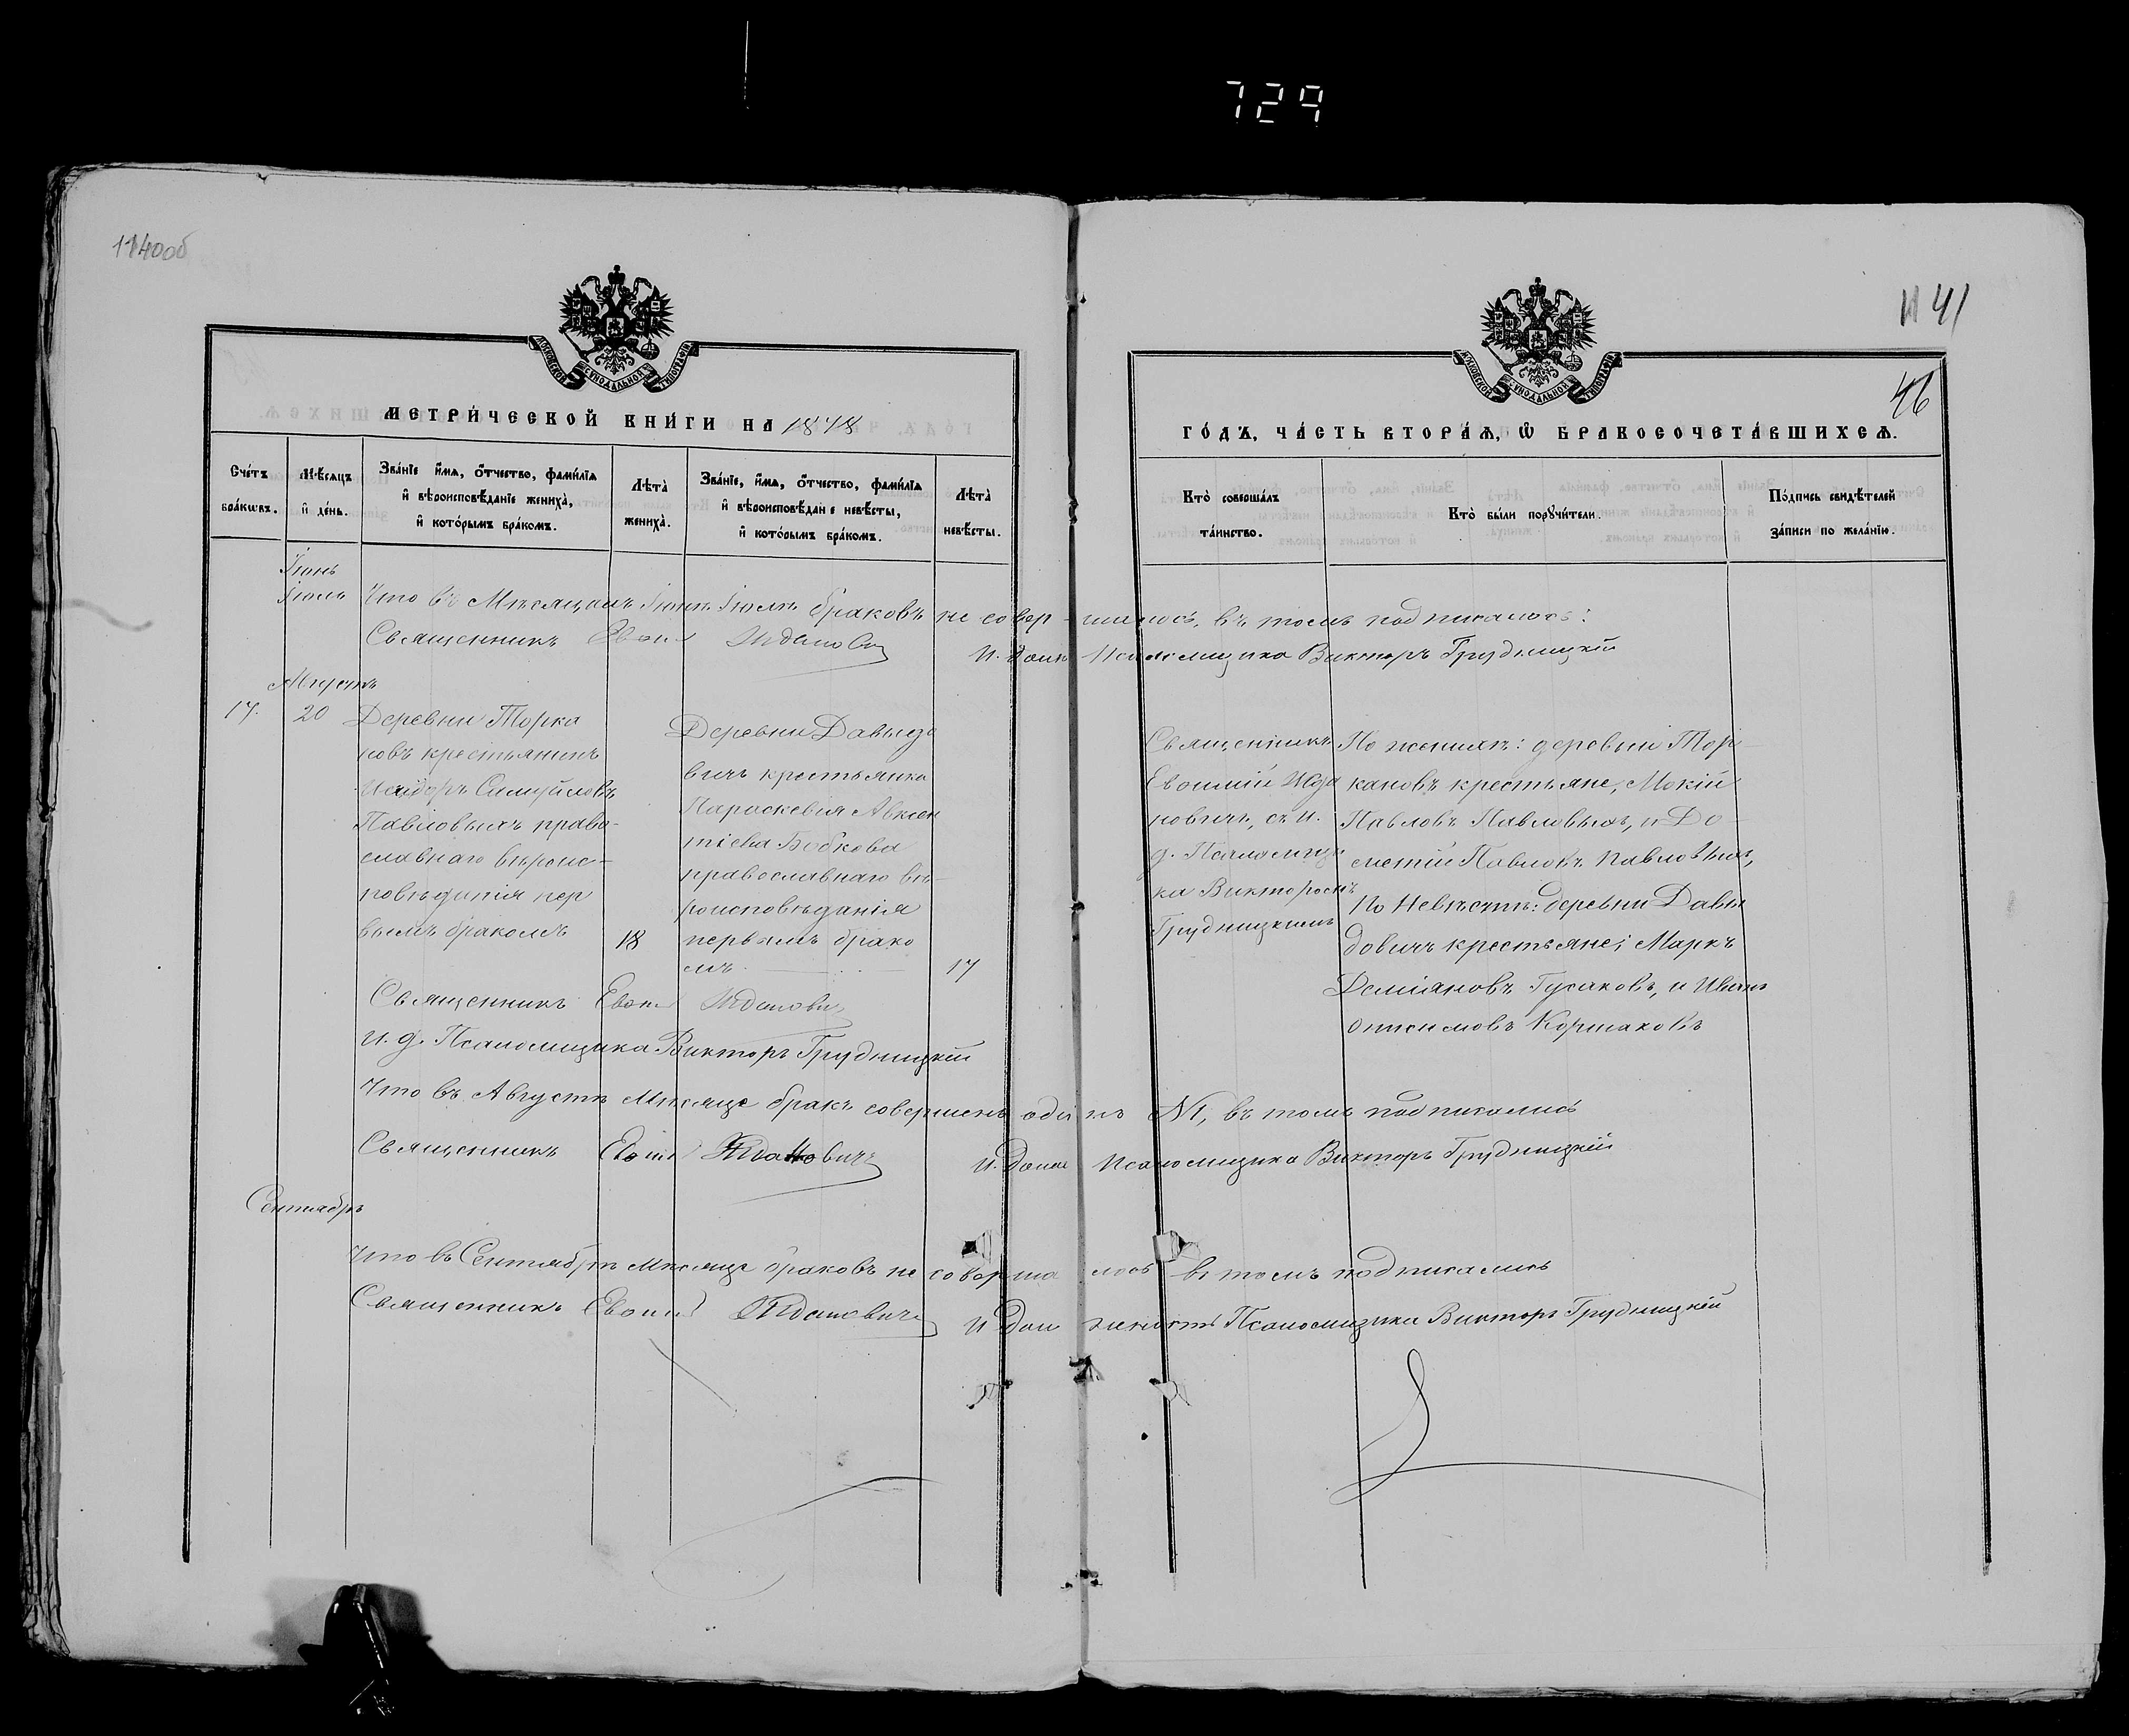 729
1140об
1141
46
МОСКОВСКОЙ СѴНОДАЛЬНОЙ ТИПОГРАФІИ
МОСКОВСКОЙ СѴНОДАЛЬНОЙ ТИПОГРАФІИ
МЕТРИ́ЧЕСКОЙ КНИ́ГИ НА 1878
ГО́ДЪ, ЧА́СТЬ ВТОРА́Ѧ, Ѡ БРАКОСОЧЕТА́ВШИХСѦ.
Сче́тъ бра́кѡвъ.
Мѣ́сяцъ и де́нь.
Зва́нїе и́мя, ѻ́тчество, фами́лїя и вѣроисповѣ́данїе жениха̀, и кото́рымъ бра́комъ.
Лѣ́та̀ жениха̀.
Зва́нїе, и́мя, ѻ́тчество, фами́лїя и вѣроисповѣ́данїе невѣ́сты, и кото́рымъ бра́комъ.
Лѣ́та̀ невѣ́сты.
Кто̀ соверша́лъ та́инство.
Кто̀ бы́ли порꙋчи́тели.
По́дпись свидѣ́телей за́писи по жела́нїю.
Іюнь
Іюль
Что въ Мѣсяцахъ Іюнѣ Іюлѣ браковъ не совершилось, въ томъ подписались:
Священникъ
И. долж. Псаломщика Викторъ Грудницкій
Августъ
17.
20
Деревни Торка
новъ крестьянинъ
Исидоръ Самуйловъ
Павловыхъ право-
славнаго вѣроис-
повѣданія пер
вымъ бракомъ
18
Деревни Давыдо
вичъ крестьянка
Параскевія Авксен
тіева Бобкова
православнаго вѣ-
роисповѣданія
первымъ брако
мъ.
17
Священникъ
Евѳимій Жда
новичъ, съ и.
д. Псаломщи
ка Викторомъ
Грудницкимъ
По женихѣ: деревни Тор-
кановъ крестьяне, Мокій
Павловъ Павловыхъ, и До-
сиѳей Павловъ Павловыхъ,
По Невѣстѣ: деревни Давы
довичъ крестьяне; Маркъ
Деміановъ Гусаковъ, и Иванъ
Онисимовъ Коршаковъ
Священникъ Евѳим Ждановичъ
И. д. Псаломщика Викторъ Грудницкій
Что въ Августѣ Мѣсяце бракъ совершенъ одинъ №1, въ томъ подписались
Священникъ Евѳим Ждановичъ
И. долж. Псаломщика Викторъ Грудницкій
Сентябрь
Что въ Сентябрѣ Мѣсяце браковъ не совершалось въ томъ подписались
Священникъ Евѳим Ждановичъ
И. должность Псаломщика Викторъ Грудницкій